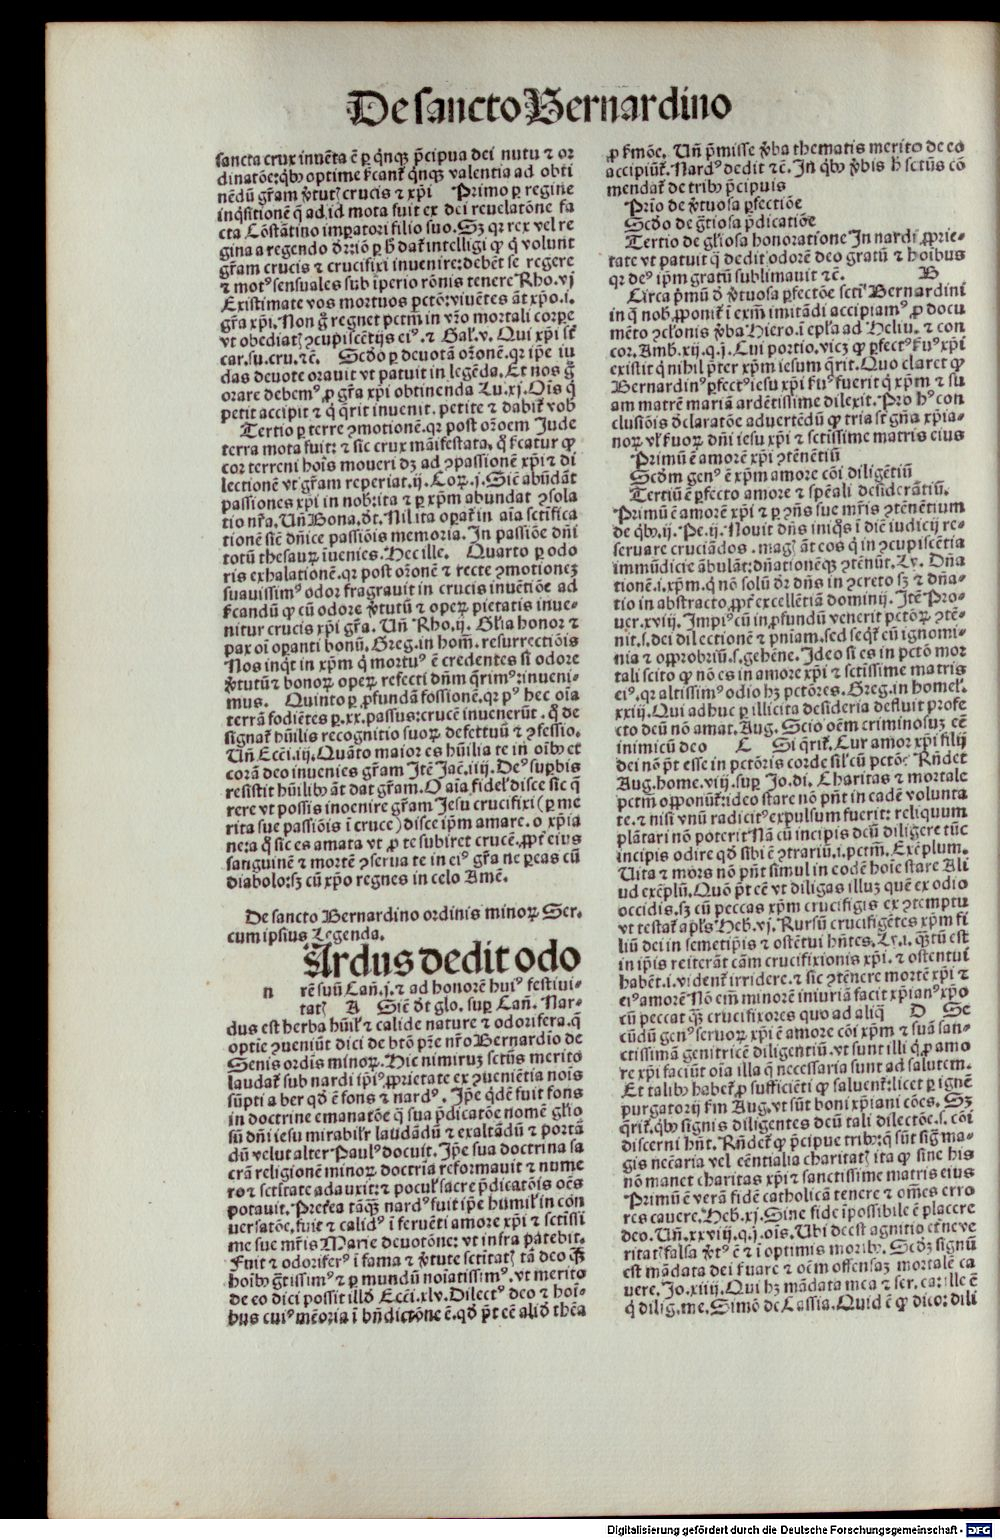 De sancto Bernardino
sancta crux inuēta ē ꝑ q̈nqꝫ p̄cipua dei nutu ⁊ or
dinatōe: qͥbꝰ optime ẜcant᷑ q̈nqꝫ valentia ad obti
nēdū gr̄am v̓tutꝭ crucis ⁊ xp̄i Primo ꝑ regine
inq̈sitionē q̄ ad id mota fuit ex dei reuelatōne fa
cta Cōstātino imꝑatori filio suo. Sꝫ qr rex vel re
gina a regendo dr̄: iō ꝑ h̄ dat᷑ intelligi ꝙ q̄ volunt
gr̄am crucis ⁊ crucifixi inuenire: debēt se regere
⁊ motꝰ sensuales sub īperio rōnis tenere Rho. vj
Existimate vos mortuos pctō: viuētes āt xp̄o. i.
gr̄a xp̄i. Non g̊ regnet pctm̄ in vr̄o mortali corpe
vt obediatꝭ ꝯcupiscētijs eiꝰ. ⁊ Gal. v. Qui xp̄i st̄
car. su. cru. ⁊c̄. Scd̄o ꝑ deuotā or̄onē. qr ip̄e iu
das deuote orauit vt patuit in legēda. Et nos g̊
orare debemꝰ ꝓ gr̄a xp̄i obtinenda Lu. xj. Oīs q̄
petit accipit ⁊ q̄ q̄rit inuenit. petite ⁊ dabit᷑ vob
Tertio ꝑ terre ꝯmotionē. qr post or̄oem Jude
terra mota fuit: ⁊ sic crux māifestata. ꝗ ẜcatur ꝙ
cor terreni hoīs moueri dꝫ ad ꝯpassionē xp̄i ⁊ di
lectionē vt gr̄am reperiat. ij. Coꝝ. j. Sic̄ abūdāt
passiones xp̄i in nob̄: ita ⁊ ꝑ xp̄m abundat ꝯsola
tio nr̄a. Un̄ Bona. d̄t. Nil ita oꝑat᷑ in aīa sctīfica
tionē sic̄ dn̄ice passiōis memoria. In passiōe dn̄i
totū thesauꝝ īuenies. Hec ille. Quarto ꝑ odo
ris exhalationē. qr post or̄onē ⁊ recte ꝯmotionez
suauissimꝰ odor fragrauit in crucis inuētiōe ad
ẜcandū ꝙ cū odore v̓tutū ⁊ opeꝝ pietatis inue-
nitur crucis xp̄i gr̄a. Un̄ Rho. ij. Gl̄ia honor ⁊
pax oī oꝑanti bonū. Greg. in hom̄. resurrectiōis
Nos inq̈t in xp̄m q̄ mortuꝰ ē credentes si odore
v̓tutū ⁊ bonoꝝ opeꝝ refecti dn̄m q̄rimꝰ: inueni-
mus. Quinto ꝑ ꝓfundā fossionē. qr pꝰ hec oīa
terrā fodiētes ꝑ. xx. passus: crucē inuenerūt. ꝗ de
signat᷑ hūilis recognitio suoꝝ defettuū ⁊ ꝯfessio.
Un̄ Ecc̄i. iij. Quāto maior es hūilia te in oībꝰ et
corā deo inuenies gr̄am Itē Jac̄. iiij. Deꝰ suꝑbis
resistit hūilibꝰ āt dat gr̄am. O aīa fidel̓ disce sic q̄
rere vt possis inoenire gr̄am Jesu crucifixi (ꝑ me
rita sue passiōis ī cruce) disce ip̄m amare. o xp̄ia
ne: a ꝗ sic es amata vt ꝓ te subiret crucē. ꝓpt̄ eius
sanguinē ⁊ mortē ꝯserua te in eiꝰ gr̄a ne ꝑeas cū
diabolo: sꝫ cū xp̄o regnes in celo Amē.
De sancto Bernardino ordinis minoꝝ Ser-
cum ipsius Legenda.
Ardus dedit odo
n rē suū Can̄. j. ⁊ ad honorē huiꝰ festiui-
tatꝭ A Sic̄ d̄t glo. suꝑ Can̄. Nar-
dus est herba hūil̓ ⁊ calide nature ⁊ odorifera. q̄
optie ꝯueniūt dici de btō pr̄e nr̄o Bernardīo de
Senis ordīs minoꝝ. Hic nimiruꝫ sctūs merito
laudat᷑ sub nardi ip̄iꝰ ꝓprietate ex ꝯueniētia noīs
sūpti a ber qd̄ ē fons ⁊ nardꝰ. Ip̄e q̈dē fuit fons
in doctrine emanatōe q̄ sua p̄dicatōe nomē glīo
sū dn̄i iesu mirabilr̄ laudādū ⁊ exaltādū ⁊ portā
dū velut alter Paulꝰ docuit. Ip̄e sua doctrina sa
crā religionē minoꝝ doctrīa reformauit ⁊ nume
ro ⁊ sctītate adauxit: ⁊ pocul̓ sacre p̄dicatōis oēs
potauit. Pret̓ea tāqꝫ nardꝰ fuit ip̄e humil̓ in con
uersatōe. fuit ⁊ calidꝰ ī feruēti amore xp̄i ⁊ sctīssi
me sue mr̄is Marie deuotōne: vt infra patebit.
Fuit ⁊ odoriferꝰ ī fama ⁊ v̓tute sctitatꝭ tā deo qꝫ
hoībꝰ gr̄tissimꝰ ⁊ ꝑ mundū noīatissimꝰ. vt merito
de eo dici possit illd̄ Ecc̄i. xlv. Dilectꝰ deo ⁊ hoī-
bus cuiꝰ mēoria ī bn̄dictōne ē. qd̄ p̄t eē aliđ thēa
ꝓ ẜmōe. Un̄ p̄misse v̓ba thematis merito de eo
accipiūt᷑. Nardꝰ dedit ⁊c̄. In qͥbꝰ v̓bis h̄ sctūs cō
mendat᷑ de tribꝰ p̄cipuis
Prīo de v̓tuosa ꝑfectiōe
Scd̄o de gr̄tiosa p̄dicatiōe
Tertio de gl̄iosa honoratione In nardi ꝓprie-
tate vt patuit q̄ dedit odorē deo gratū ⁊ hoībus
qr deꝰ ip̄m gratū sublimauit ⁊c̄. B
Circa p̄mū đ v̓tuosa ꝑfectōe sctī Bernardini
in q̄ nob̄ ꝓponit᷑ ī exm̄ imitādi accipiamꝰ ꝓ docu
mēto ꝯclōnis v̓ba Hiero. ī epl̄a ad Heliu. ⁊ con
cor. Amb. xij. q. j. Cui portio. vicꝫ ꝙ ꝑfectꝰ ẜuꝰ xp̄i
existit q̄ nihil p̄ter xp̄m iesum q̄rit. Quo claret ꝙ
Bernardinꝰ ꝑfectꝰ iesu xp̄i ẜuꝰ fuerit q̄ xp̄m ⁊ su
am matrē mariā ardētissime dilexit. Pro hꝰ con
clusiōis declaratōe aduertēdū ꝙ tria st̄ gn̄a xp̄ia-
noꝝ vl̓ ẜuoꝝ dn̄i iesu xp̄i ⁊ sctīssime matris eius
Primū ē amorē xp̄i ꝯtēnētiū
Scd̄m genꝰ ē xp̄m amore cōi diligētiū
Tertiū ē ꝑfecto amore ⁊ spēali desiderātiū.
Primū ē amorē xp̄i ⁊ ꝑ ꝯn̄s sue mr̄is ꝯtēnētium
de qͥbꝰ. ij. Pe. ij. Nouit dn̄s iniq̄s ī diē iudicij re-
seruare cruciādos. magꝭ āt eos q̄ in ꝯcupiscētia
immūdicie ābulāt: dn̄ationēqꝫ ꝯtēnūt. Ly. Dn̄a
tionē. i. xp̄m. q̄ nō solū dr̄ dn̄s in ꝯcreto sꝫ ⁊ dn̄a-
tio in abstracto ꝓpt̄ excellētiā dominij. Itē Pro-
uer. xviij. Impiꝰ cū in ꝓfundū venerit pctōꝝ ꝯtē-
nit. s. dei dilectionē ⁊ pn̄iam. sed seq̈t᷑ cū ignomi-
nia ⁊ opprobriū. s. gehēne. Ideo si es in pctō mor
tali scito ꝙ nō es in amore xp̄i ⁊ sctīssime matris
eiꝰ. qr altissimꝰ odio hꝫ pctōres. Greg. in homel̓.
xxiij. Qui adhuc ꝑ illicita desideria defluit profe
cto deū nō amat. Aug. Scio oēm criminosuꝫ eē
inimicū deo C Si q̄rit᷑. Cur amor xp̄i filij
dei nō p̄t esse in pctōris corde sil̓ cū pctō: Rn̄det
Aug. home. viij. suꝑ Jo. di. Charitas ⁊ mortale
pctm̄ opponūt᷑: ideo stare nō pn̄t in eadē volunta
te. ⁊ nisi vnū radicitꝰ expulsum fuerit: reliquum
plātari nō poterit Nā cū incipis deū diligere tūc
incipis odire qd̄ sibi ē ꝯtrariū. i. pctm̄. Exēplum.
Uita ⁊ mors nō pn̄t simul in eodē hoīe stare Ali
ud exēplū. Quō p̄t eē vt diligas illuꝫ quē ex odio
occidis. sꝫ cū peccas xp̄m crucifigis ex ꝯtemptu
vt testat᷑ apl̓s Heb. vj. Rursū crucifigētes xp̄m fi
liū dei in semetip̄is ⁊ ostētui hn̄tes. Ly. i. qꝫtū est
in ip̄is reiterāt cām crucifixionis xp̄i. ⁊ ostentui
habēt. i. vident᷑ irridere. ⁊ sic ꝯtēnere mortē xp̄i ⁊
eiꝰ amorē Nō em̄ minorē iniuriā facit xp̄ianꝰ xp̄o
cū peccat qꝫ crucifixores quo ad aliq̄ D Se
cūdū genꝰ seruoꝝ xp̄i ē amore cōi xp̄m ⁊ suā san-
ctissimā genitricē diligentiū. vt sunt illi q̄ ꝓ amo
re xp̄i faciūt oīa illa q̄ necessaria sunt ad salutem.
Et talibꝰ habet᷑ ꝓ sufficiēti ꝙ saluent᷑: licet ꝑ ignē
purgatorij ẜm Aug. vt sūt boni xp̄iani cōes. Sꝫ
q̄rit᷑. qͥbꝰ signis diligentes deū tali dilectōe. s. cōi
discerni hn̄t. Rn̄det᷑ ꝙ p̄cipue tribꝰ: q̄ sūt sig̅ ma-
gis nec̄aria vel eēntialia charitatꝭ ita ꝙ sine his
nō manet charitas xp̄i ⁊ sanctissime matris eius
Primū ē verā fidē catholicā tenere ⁊ om̄es erro
res cauere. Heb. xj. Sine fide īpossibile ē placere
deo. Un̄. xxviij. q. j. oīs. Ubi deest agnitio et̓ne ve
ritatꝭ falsa v̓tꝰ ē ⁊ ī optimis moribꝰ. Scd̄ꝫ signū
est mādata dei ẜuare ⁊ oēm offensaꝫ mortalē ca
uere. Jo. xiiij. Qui hꝫ mādata mea ⁊ ser. ea: ille ē
q̄ dilig. me. Simō de Cassia. Quid ē ꝙ dico: dili
Digitalisierung gefördert durch die Deutsche Forschungsgemeinschaft - DFG